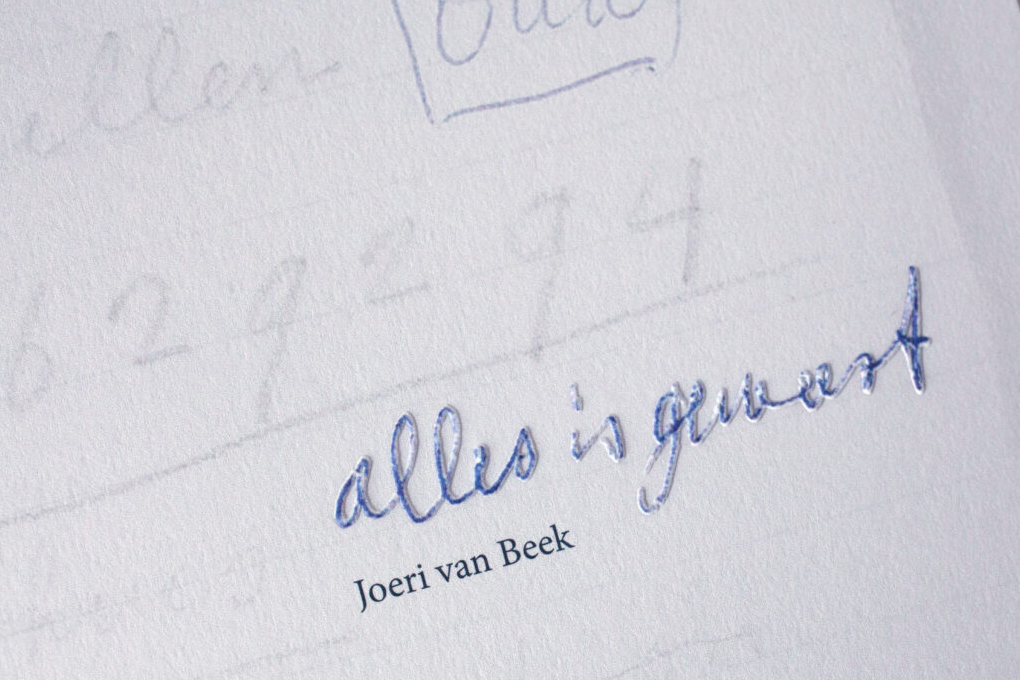 allen
oud
6 2 9 2 9 4
alles is geweest
Joeri van Beek